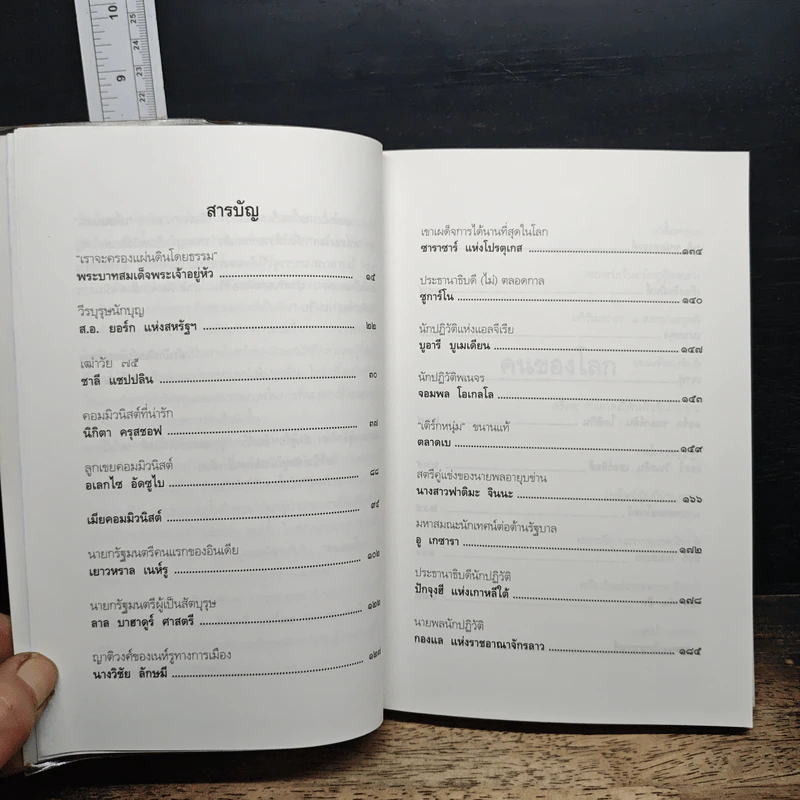 10
9
25
24
23
22
สารบัญ
"เราจะครองแผ่นดินโดยธรรม"
พระบาทสมเด็จพระเจ้าอยู่หัว ๑๔
วีรบุรุษนักบุญ
ส.อ. ยอร์ก แห่งสหรัฐฯ ๒๒
เฒ่าวัย ๗๕
ชาลี แชปปลิน ๓๐
คอมมิวนิสต์ที่น่ารัก
นิกิตา ครุสชอฟ ๓๗
ลูกเขยคอมมิวนิสต์
อเลกไซ อัดซูไบ ๘๘
เมียคอมมิวนิสต์ ๙๔
นายกรัฐมนตรีคนแรกของอินเดีย
เยาวหราล เนห์รู ๑๐๒
นายกรัฐมนตรีผู้เป็นสัตบุรุษ
ลาล บาฮาดูร์ ศาสตรี ๑๒๒
ญาติวงศ์ของเนห์รูทางการเมือง
นางวิชัย ลักษมี ๑๒๗
เขาเผด็จการได้นานที่สุดในโลก
ซาราซาร์ แห่งโปรตุเกส ๑๓๔
ประธานาธิบดี (ไม่) ตลอดกาล
ซูการ์โน ๑๔๐
นักปฏิวัติแห่งแอลจีเรีย
บูอารี บูเมเดียน ๑๔๗
นักปฏิวัติพเนจร
จอมพล โอเกลโล ๑๕๓
"เติร์กหนุ่ม" ขนานแท้
ตลาดเบ ๑๕๙
สตรีคู่แข่งของนายพลอายุบข่าน
นางสาวฟาติมะ จินนะ ๑๖๖
มหาสมณะนักเทศน์ต่อต้านรัฐบาล
อู เกซารา ๑๗๒
ประธานาธิบดีนักปฏิวัติ
ปักจุงฮี แห่งเกาหลีใต้ ๑๗๘
นายพลนักปฏิวัติ
กองแล แห่งราชอาณาจักรลาว ๑๘๕